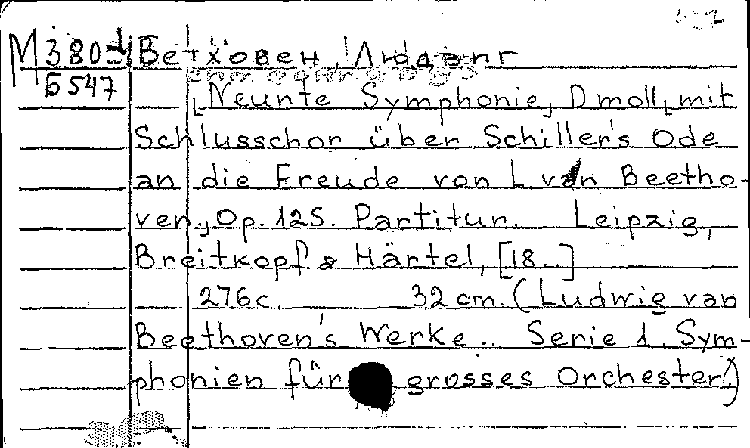 М380-1 Бетховен, Людвиг
Б547
[Neunte Symphonie, D moll, mit
Schlusschor über Schiller's Ode
an die Freude von L. van Beetho-
ven, Op. 125. Partitur. Leipzig,
Breitkopf & Härtel, [18..]
276с. 32 cm. (Ludwig van
Beethoven's Werke.. Serie 1. Sym-
phonien für grosses Orchester)